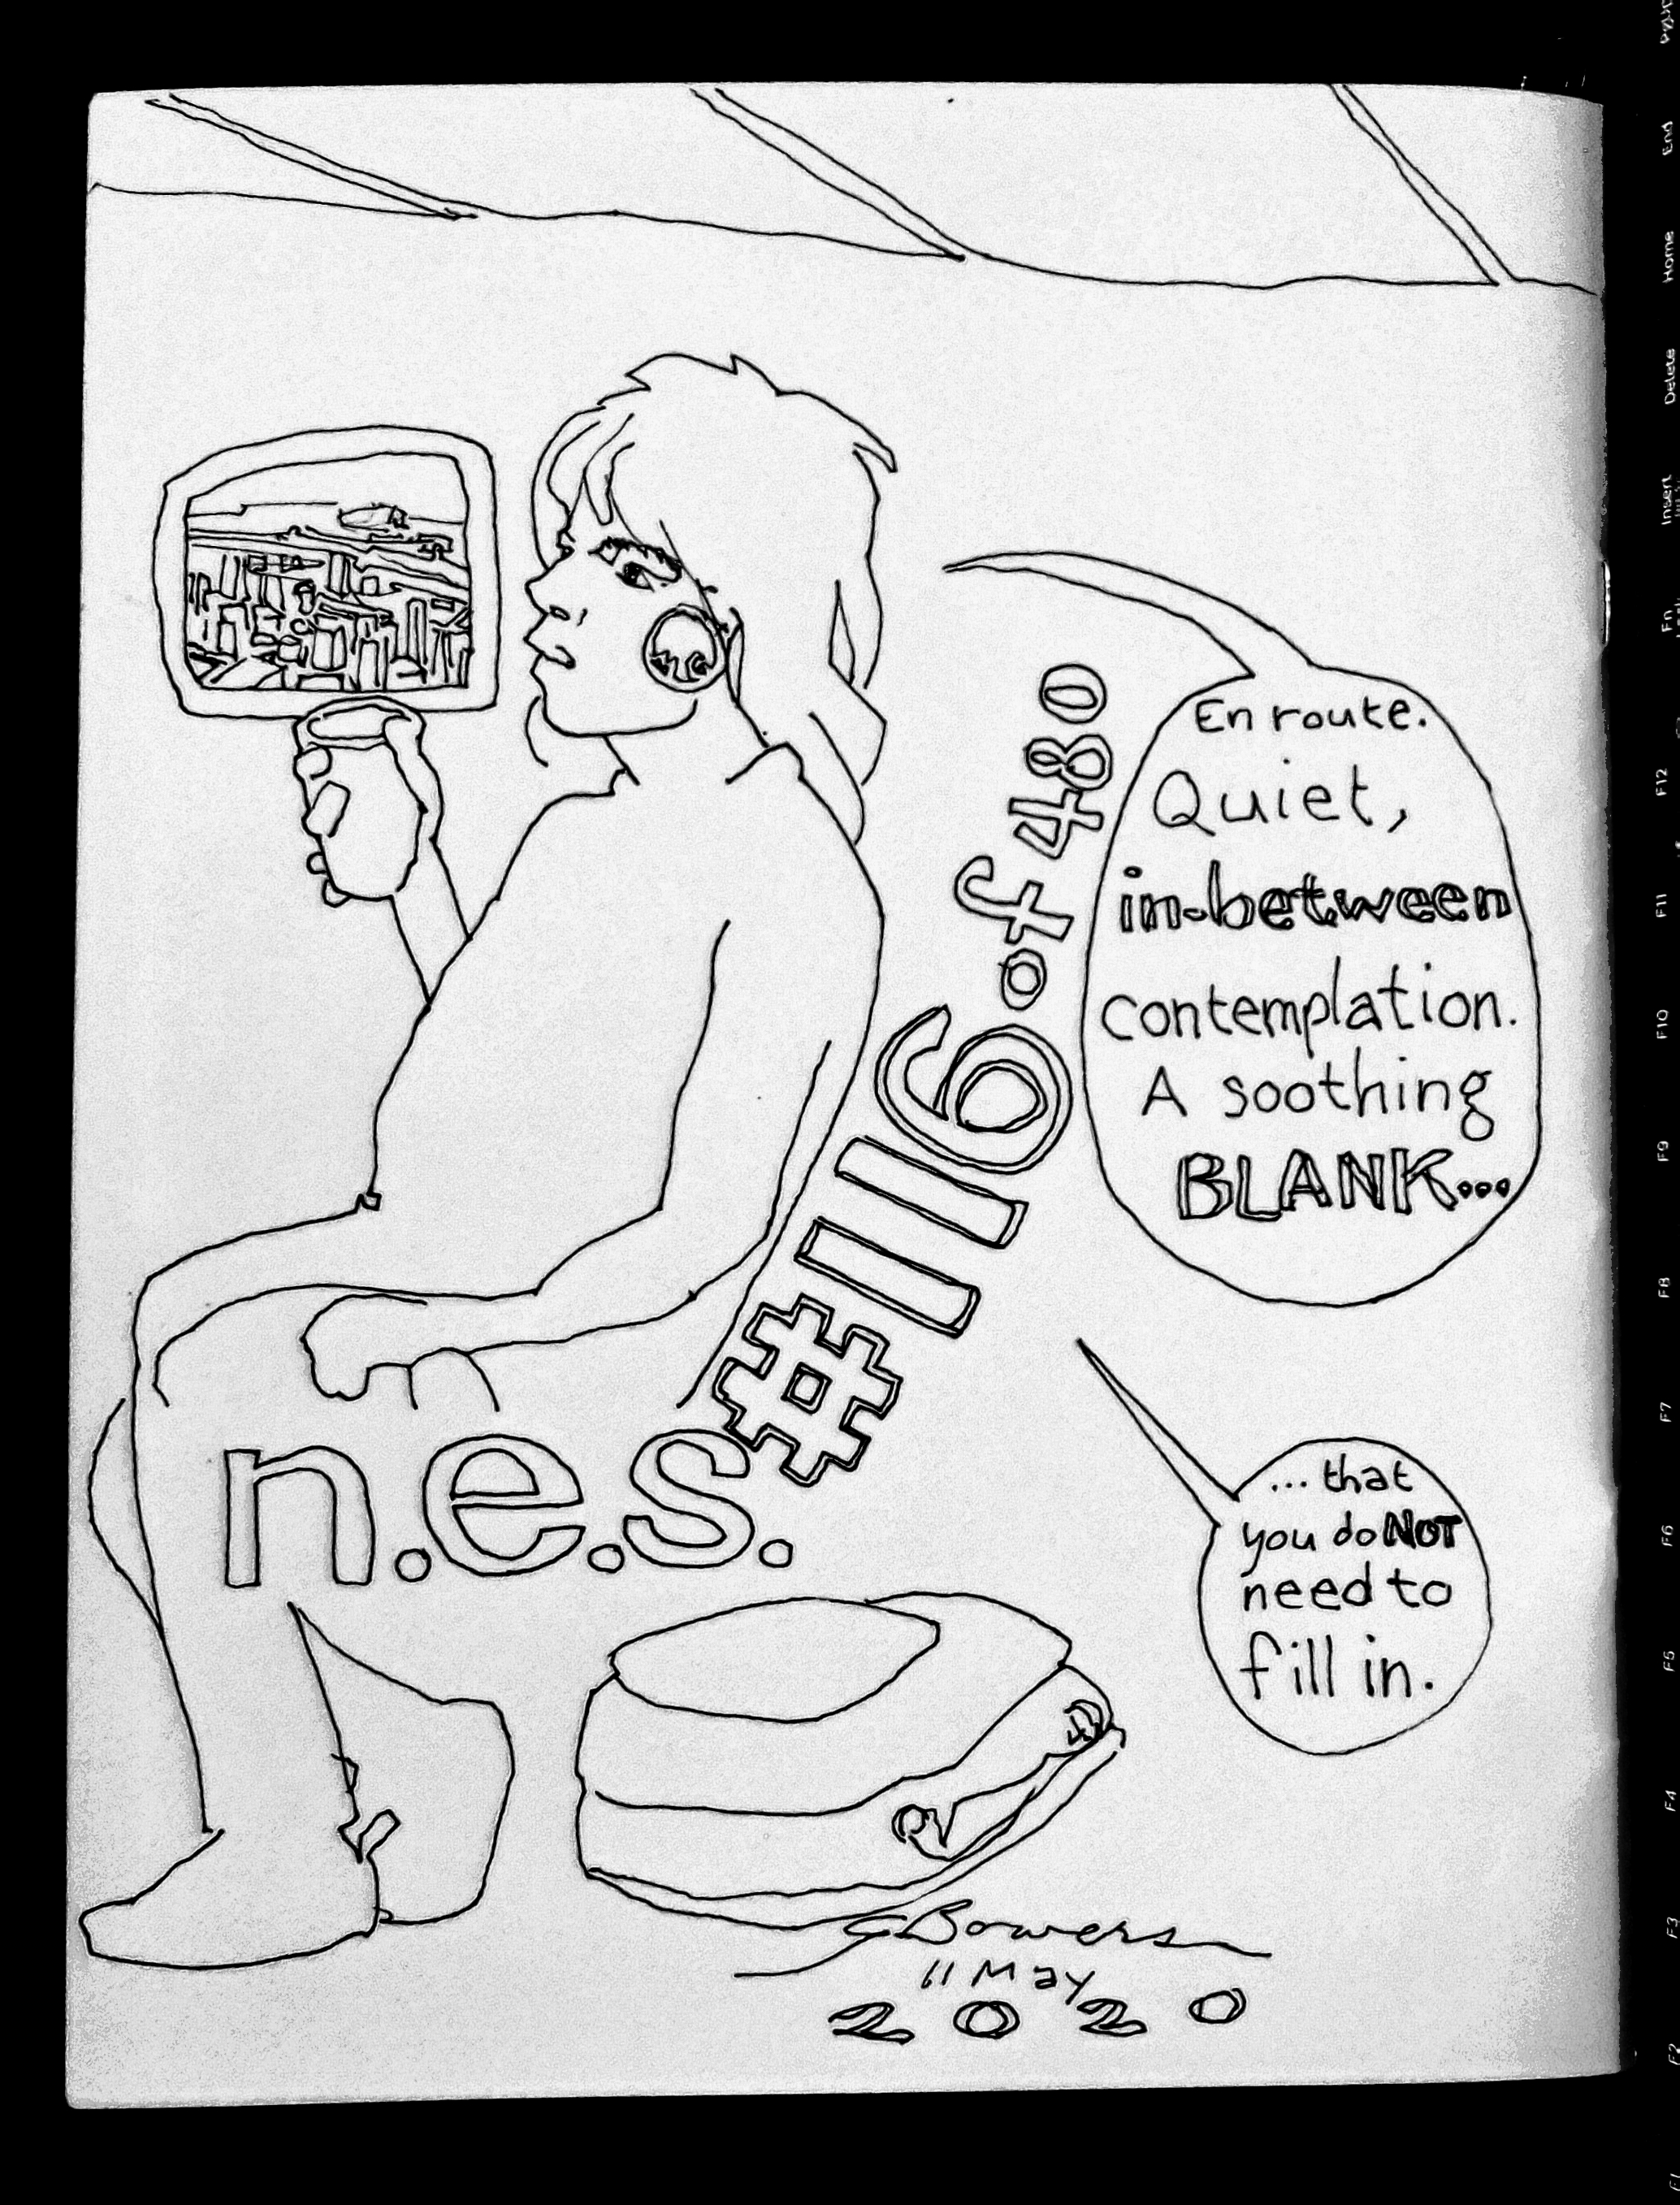 En route.
Quiet,
in-between
contemplation.
A soothing
BLANK...
n.e.s. #116 of 480
... that
you do NOT
need to
fill in.
GBowers
11 May
2020
End
Home
Delete
Insert
Fn
F12
F11
F10
F9
F8
F7
F6
F5
F4
F3
F2
F1